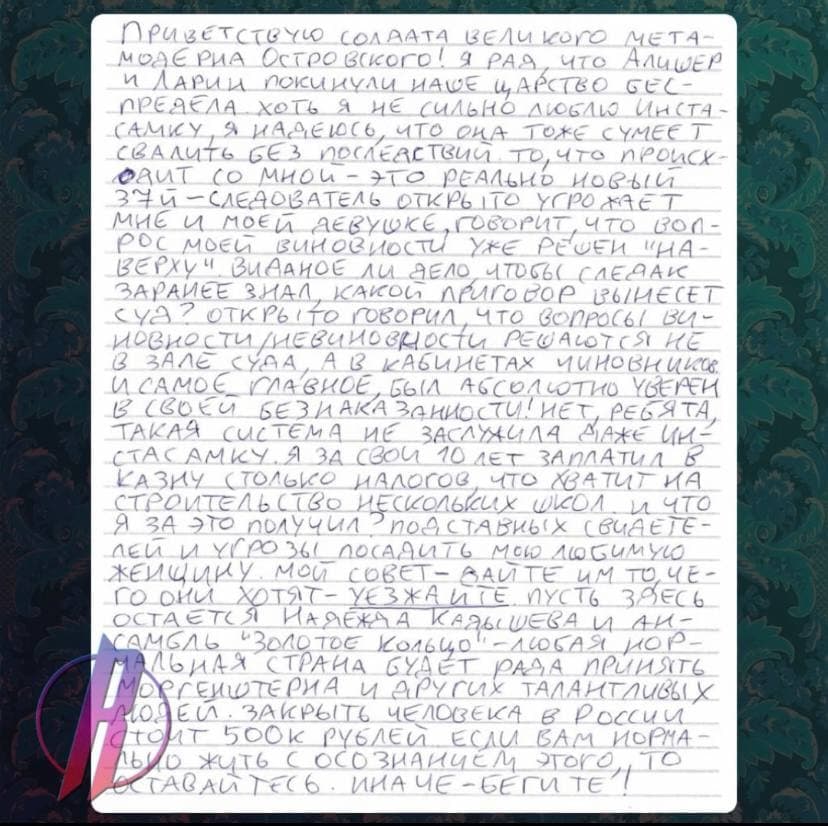 ПРИВЕТСТВУЮ СОЛДАТА ВЕЛИКОГО МЕТА-
МОДЕРНА ОСТРОВСКОГО! Я РАД, ЧТО АЛИШЕР
И ЛАРИН ПОКИНУЛИ НАШЕ ЦАРСТВО БЕС-
ПРЕДЕЛА. ХОТЬ Я НЕ СИЛЬНО ЛЮБЛЮ ИНСТА-
САМКУ, Я НАДЕЮСЬ, ЧТО ОНА ТОЖЕ СУМЕЕТ
СВАЛИТЬ БЕЗ ПОСЛЕДСТВИЙ. ТО, ЧТО ПРОИСХ-
ОДИТ СО МНОЙ - ЭТО РЕАЛЬНО НОВЫЙ
37Й - СЛЕДОВАТЕЛЬ ОТКРЫТО УГРОЖАЕТ
МНЕ И МОЕЙ ДЕВУШКЕ, ГОВОРИТ, ЧТО ВОП-
РОС МОЕЙ ВИНОВНОСТИ УЖЕ РЕШЕН "НА-
ВЕРХУ". ВИДАНОЕ ЛИ ДЕЛО, ЧТОБЫ СЛЕДАК
ЗАРАНЕЕ ЗНАЛ, КАКОЙ ПРИГОВОР ВЫНЕСЕТ
СУД? ОТКРЫТО ГОВОРИЛ, ЧТО ВОПРОСЫ ВИ-
НОВНОСТИ/НЕВИНОВНОСТИ РЕШАЮТСЯ НЕ
В ЗАЛЕ СУДА, А В КАБИНЕТАХ ЧИНОВНИКОВ.
И САМОЕ ГЛАВНОЕ, БЫЛ АБСОЛЮТНО УВЕРЕН
В СВОЕЙ БЕЗНАКАЗАННОСТИ! НЕТ, РЕБЯТА,
ТАКАЯ СИСТЕМА НЕ ЗАСЛУЖИЛА ДАЖЕ ИН-
СТАСАМКУ. Я ЗА СВОИ 10 ЛЕТ ЗАПЛАТИЛ В
КАЗНУ СТОЛЬКО НАЛОГОВ, ЧТО ХВАТИТ НА
СТРОИТЕЛЬСТВО НЕСКОЛЬКИХ ШКОЛ. И ЧТО
Я ЗА ЭТО ПОЛУЧИЛ? ПОДСТАВНЫХ СВИДЕТЕ-
ЛЕЙ И УГРОЗЫ ПОСАДИТЬ МОЮ ЛЮБИМУЮ
ЖЕНЩИНУ. МОЙ СОВЕТ - ДАЙТЕ ИМ ТО, ЧЕ-
ГО ОНИ ХОТЯТ - УЕЗЖАЙТЕ. ПУСТЬ ЗДЕСЬ
ОСТАЕТСЯ НАДЕЖДА КАДЫШЕВА И АН-
САМБЛЬ "ЗОЛОТОЕ КОЛЬЦО" - ЛЮБАЯ НОР-
МАЛЬНАЯ СТРАНА БУДЕТ РАДА ПРИНЯТЬ
МОРГЕНШТЕРНА И ДРУГИХ ТАЛАНТЛИВЫХ
ЛЮДЕЙ. ЗАКРЫТЬ ЧЕЛОВЕКА В РОССИИ
СТОИТ 500К РУБЛЕЙ. ЕСЛИ ВАМ НОРМА-
ЛЬНО ЖИТЬ С ОСОЗНАНИЕМ ЭТОГО, ТО
ОСТАВАЙТЕСЬ. ИНАЧЕ - БЕГИТЕ!